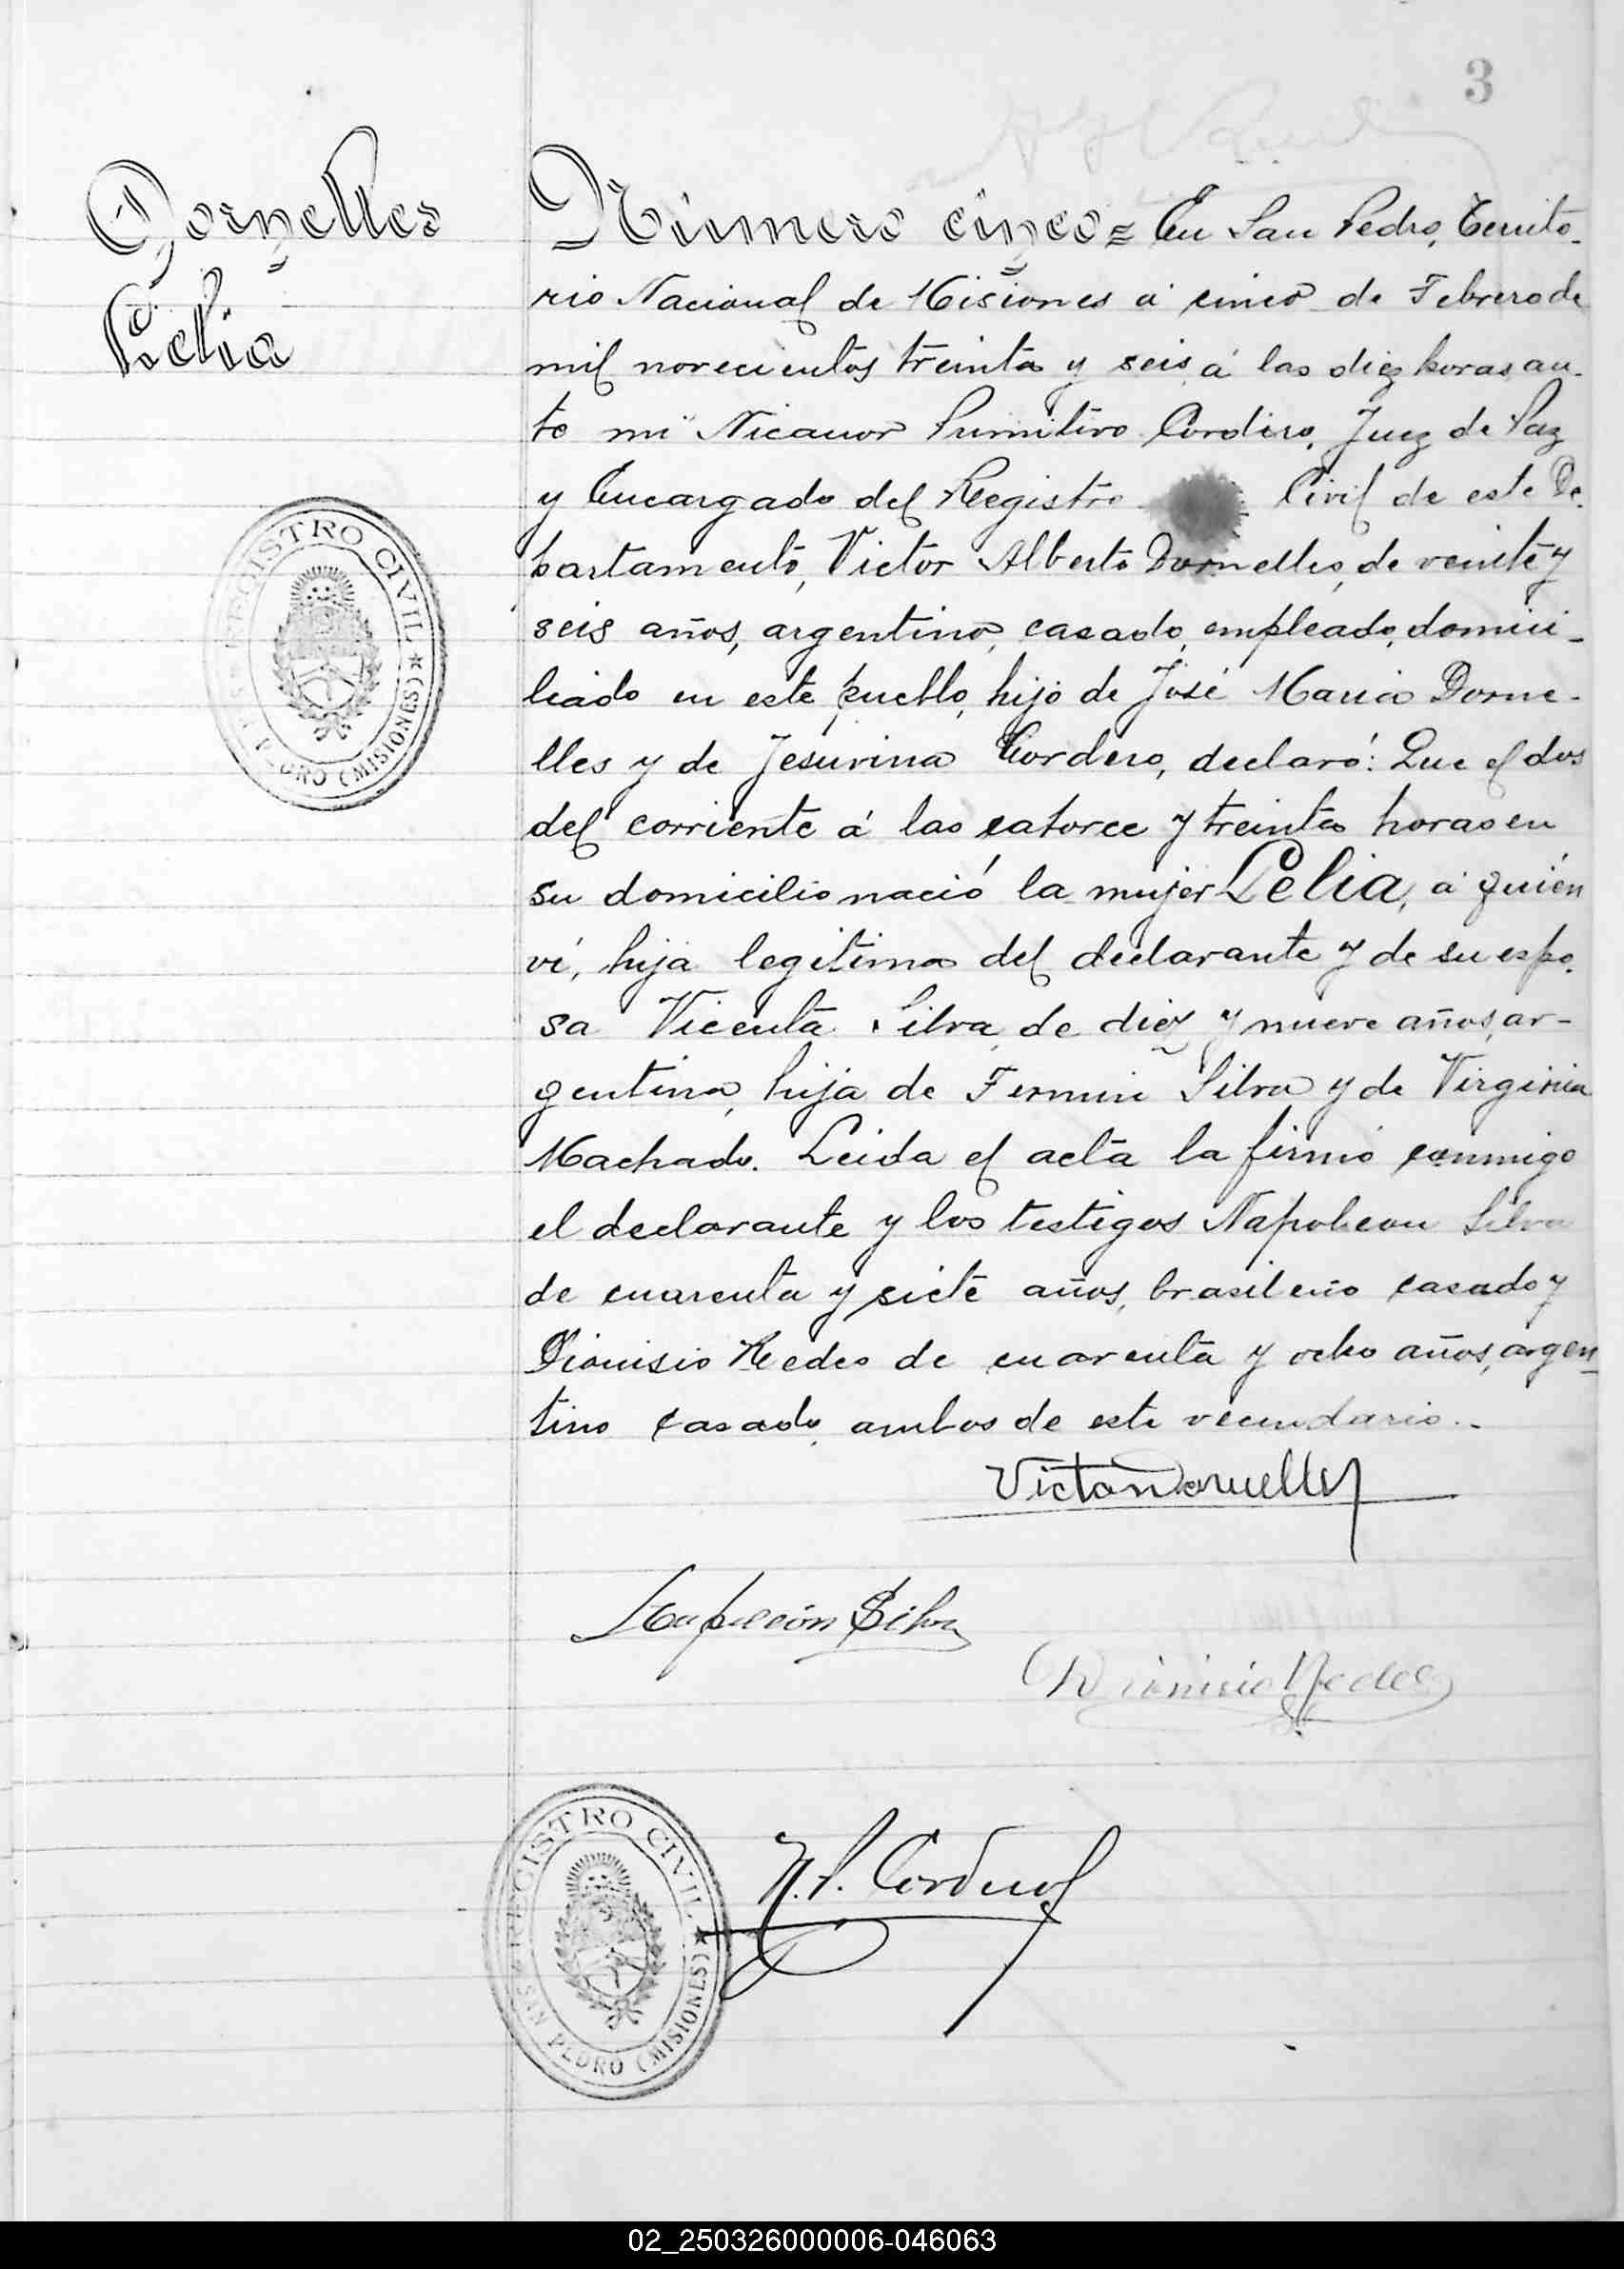 3
Dornelles
Lelia
Número cinco = En San Pedro, Territo-
rio Nacional de Misiones á cinco de Febrero de
mil novecientos treinta y seis, á las diez horas, an-
te mi Nicanor Primitivo Cordero, Juez de Paz
y Encargado del Registro Civil de este De-
partamento, Victor Alberto Dornelles, de veinte y
seis años, argentino, casado, empleado, domici-
liado en este pueblo, hijo de José Maria Dorne-
lles y de Jesuvina Cordero, declaró: Que el dos
del corriente á las catorce y treinta horas en
su domicilio nació la mujer Lelia, á quién
ví, hija legitima del declarante y de su espo-
sa Vicenta Silva, de diez y nueve años, ar-
gentina, hija de Fermin Silva y de Virginia
Machado. Leida el acta la firmó conmigo
el declarante y los testigos Napoleon Silva
de cuarenta y siete años, brasileño casado y
Dionisio Redes de cuarenta y ocho años, argen-
tino casado, ambos de este vecindario.-
Victor Dornelles
Napoleón Silva
Dionisio Redes
N. P. Cordero
REGISTRO CIVIL ★ SAN PEDRO (MISIONES)
REGISTRO CIVIL ★ SAN PEDRO (MISIONES)
02_250326000006-046063